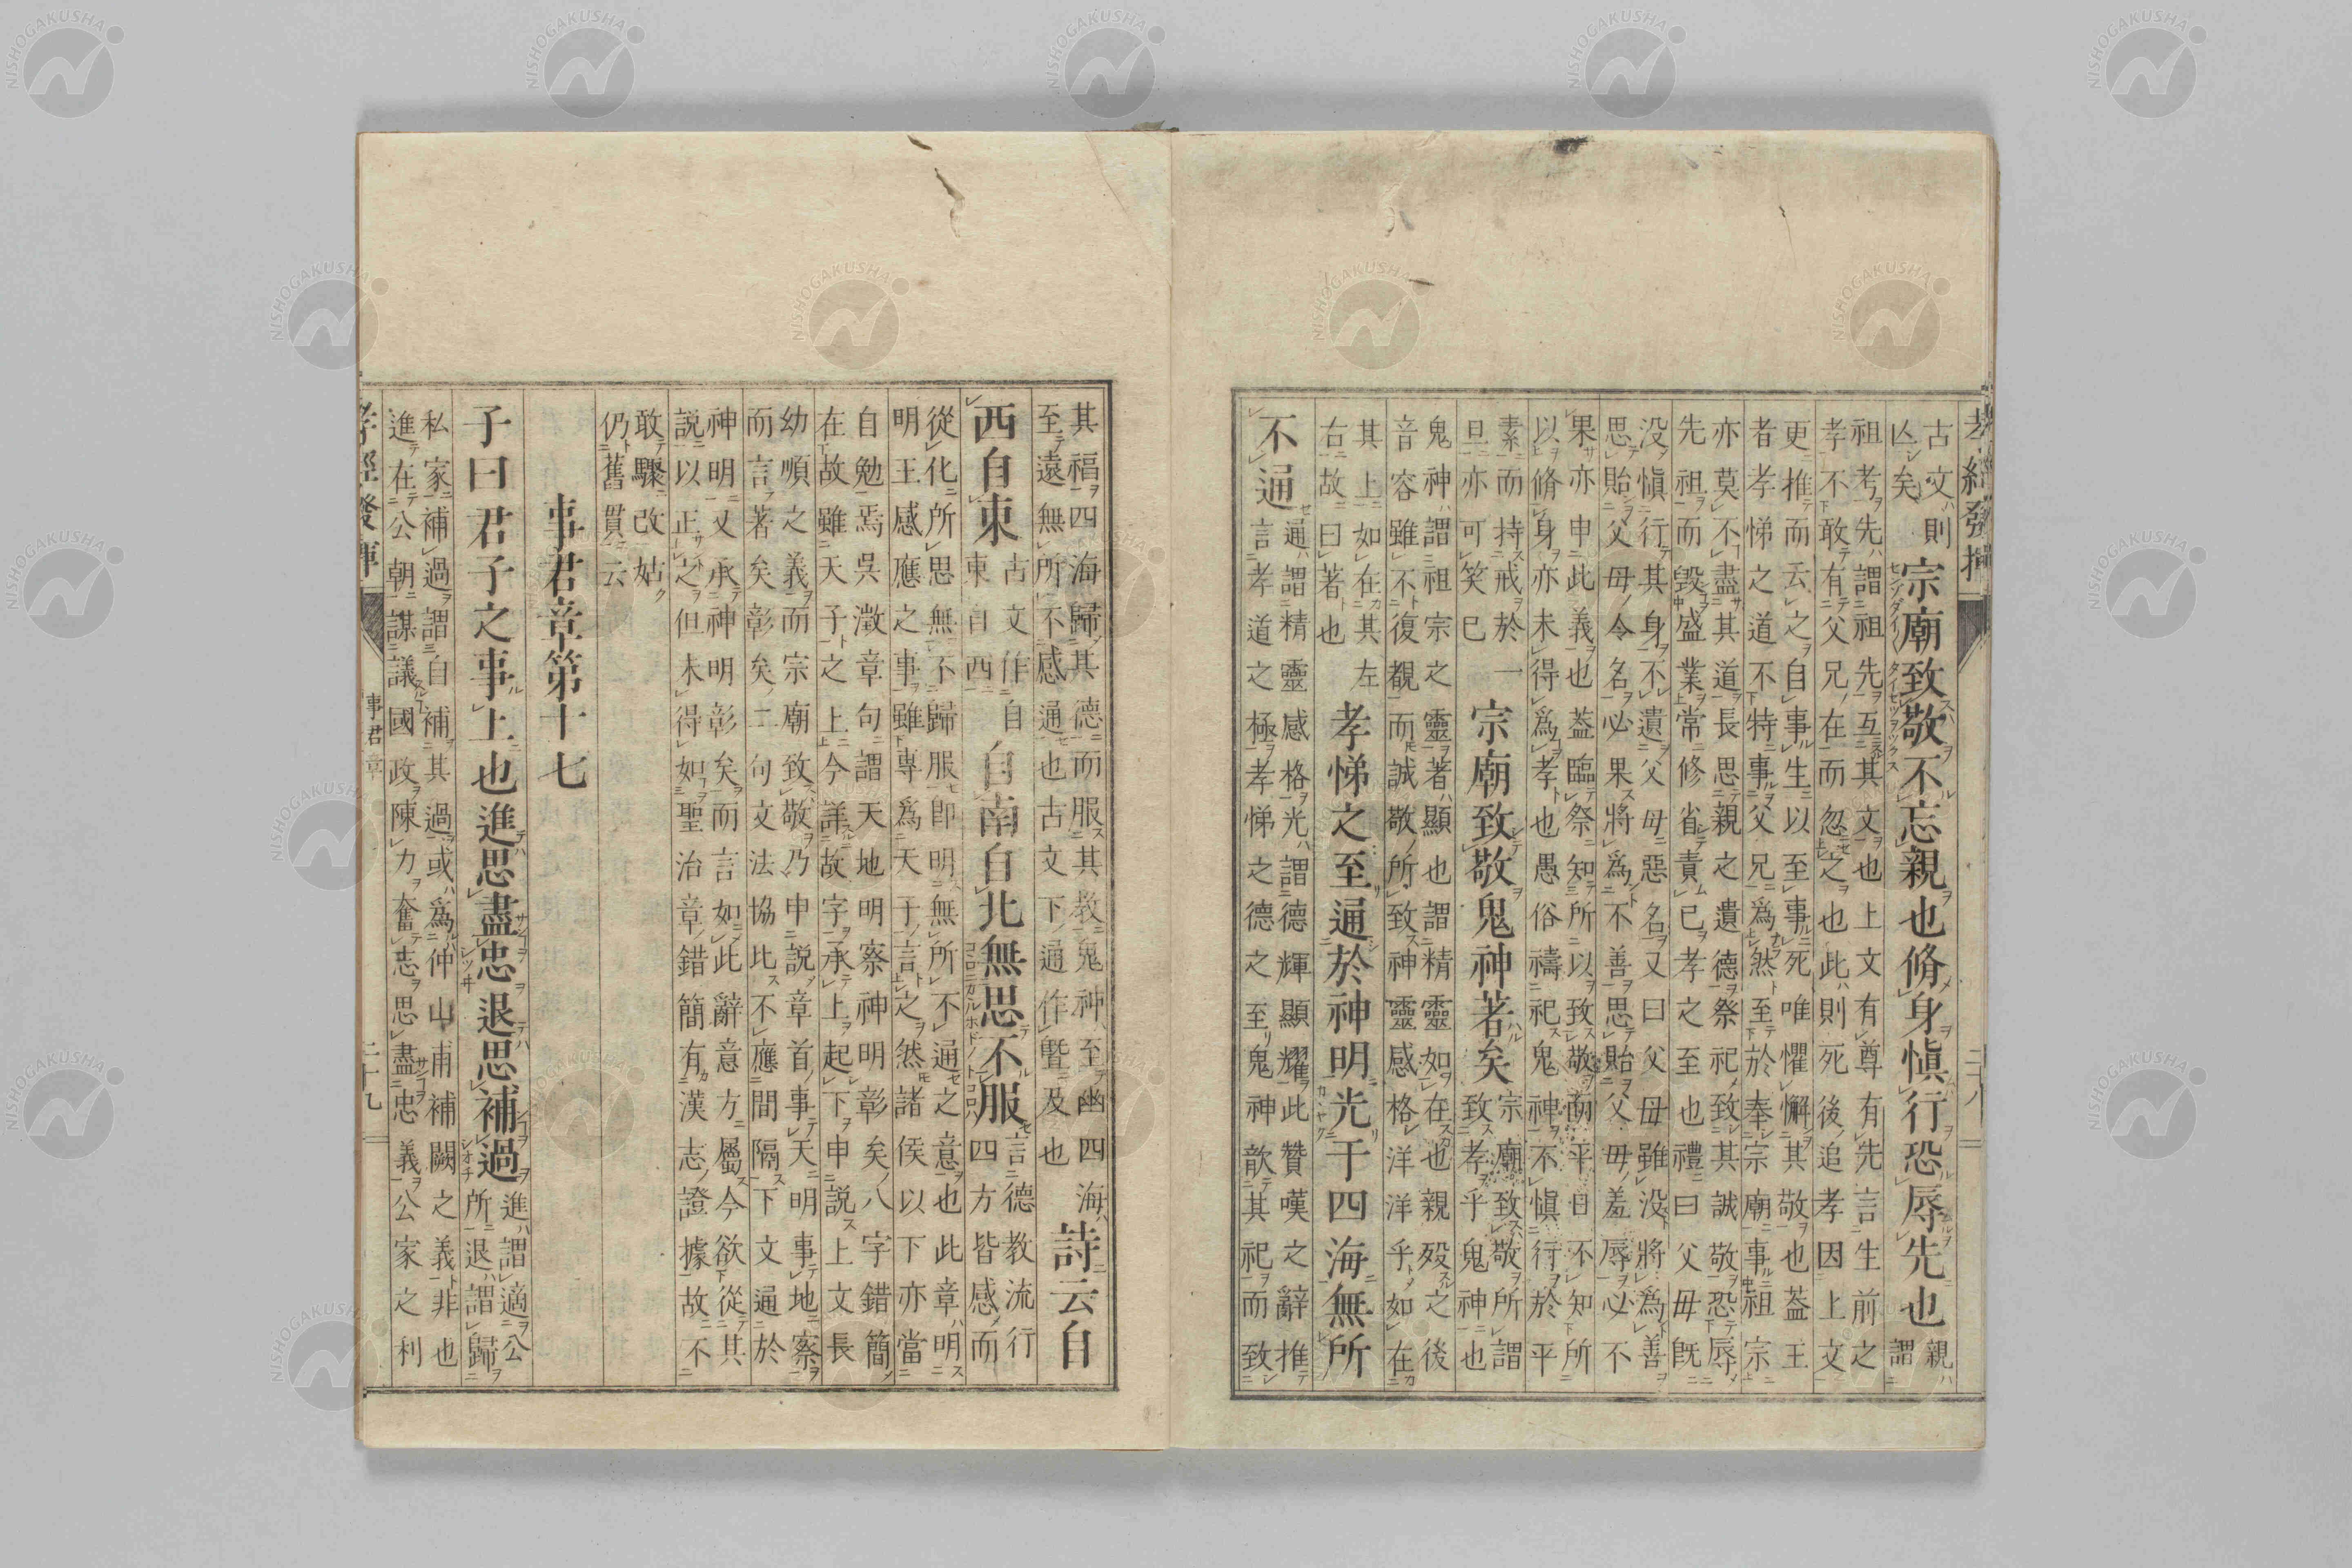 孝經發揮 二十八
古文則
亾矣
宗廟致敬不忘親也脩身愼行恐辱先也
親
謂
祖考先謂祖先互其文也上文有尊有先言生前之
孝不敢有父兄在而忽之也此則死後追孝因上文
更推而云之自事生以至事死唯懼懈其敬也葢王
者孝悌之道不特事父兄爲然至於奉宗廟事祖宗
亦莫不盡其道長思親之遺德祭祀致其誠敬恐辱
先祖而毀盛業常修省責已孝之至也禮曰父毋旣
没愼行其身不遺父毋惡名又曰父毋雖没將爲善
思貽父毋令名必果將爲不善思貽父毋羞辱必不
果亦申此義也葢臨祭知所以致敬而平日不知所
以脩身亦未得爲孝也愚俗禱祀鬼神不愼行於平
素而持戒於一
旦亦可笑已
宗廟致敬鬼神著矣
宗廟致敬所謂
致孝乎鬼神也
鬼神謂祖宗之靈著顯也謂精靈如在也親殁之後
音容雖不復覩而誠敬所致神靈感格洋洋乎如在
其上如在其左
右故曰著也
孝悌之至通於神明光于四海無所
不通
通謂精靈感格光謂德輝顯耀此贊嘆之辭推
言孝道之極孝悌之德之至鬼神歆其祀而致
其福四海歸其德而服其教鬼神至幽四海
至遠無所不感通也古文下通作曁及也
詩云自
西自東
古文作自
東自西
自南自北無思不服
言德教流行
四方皆感而
從化所思無不歸服卽明無所不通之意也此章明
明王感應之事雖專爲天子言之然諸侯以下亦當
自勉焉吳澂章句謂天地明察神明彰矣八字錯簡
在故雖天子之上今詳故字承上起下申説上文長
幼順之義而宗廟致敬乃申説章首事天明事地察
而言著矣彰矣二句文法協比不應間隔下文通於
神明又承神明彰矣而言如此辭意方屬今欲從其
説以正之但未得如聖治章錯簡有漢志證據故不
敢驟改姑
仍舊貫云
事君章第十七
子曰君子之事上也進思盡忠退思補過
進謂適公
所退謂歸
私家補過謂自補其過或爲仲山甫補闕之義非也
進在公朝謀議國政陳力奮志思盡忠義公家之利
孝經發揮 事君章 二十九